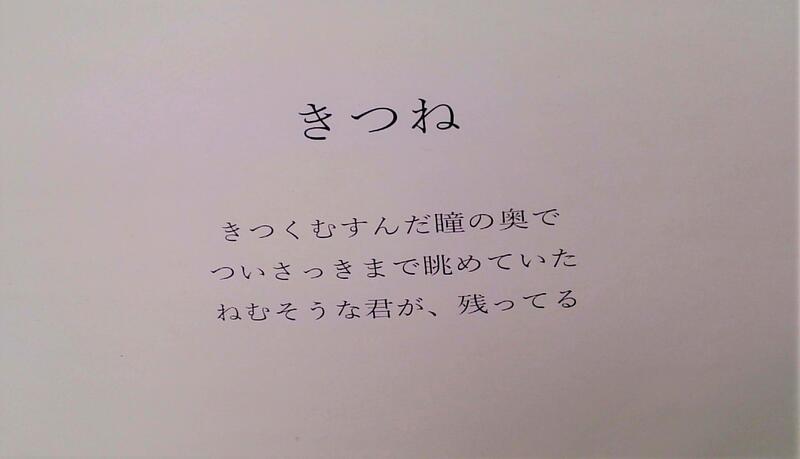 きつね
きつくむすんだ瞳の奥で
ついさっきまで眺めていた
ねむそうな君が、残ってる